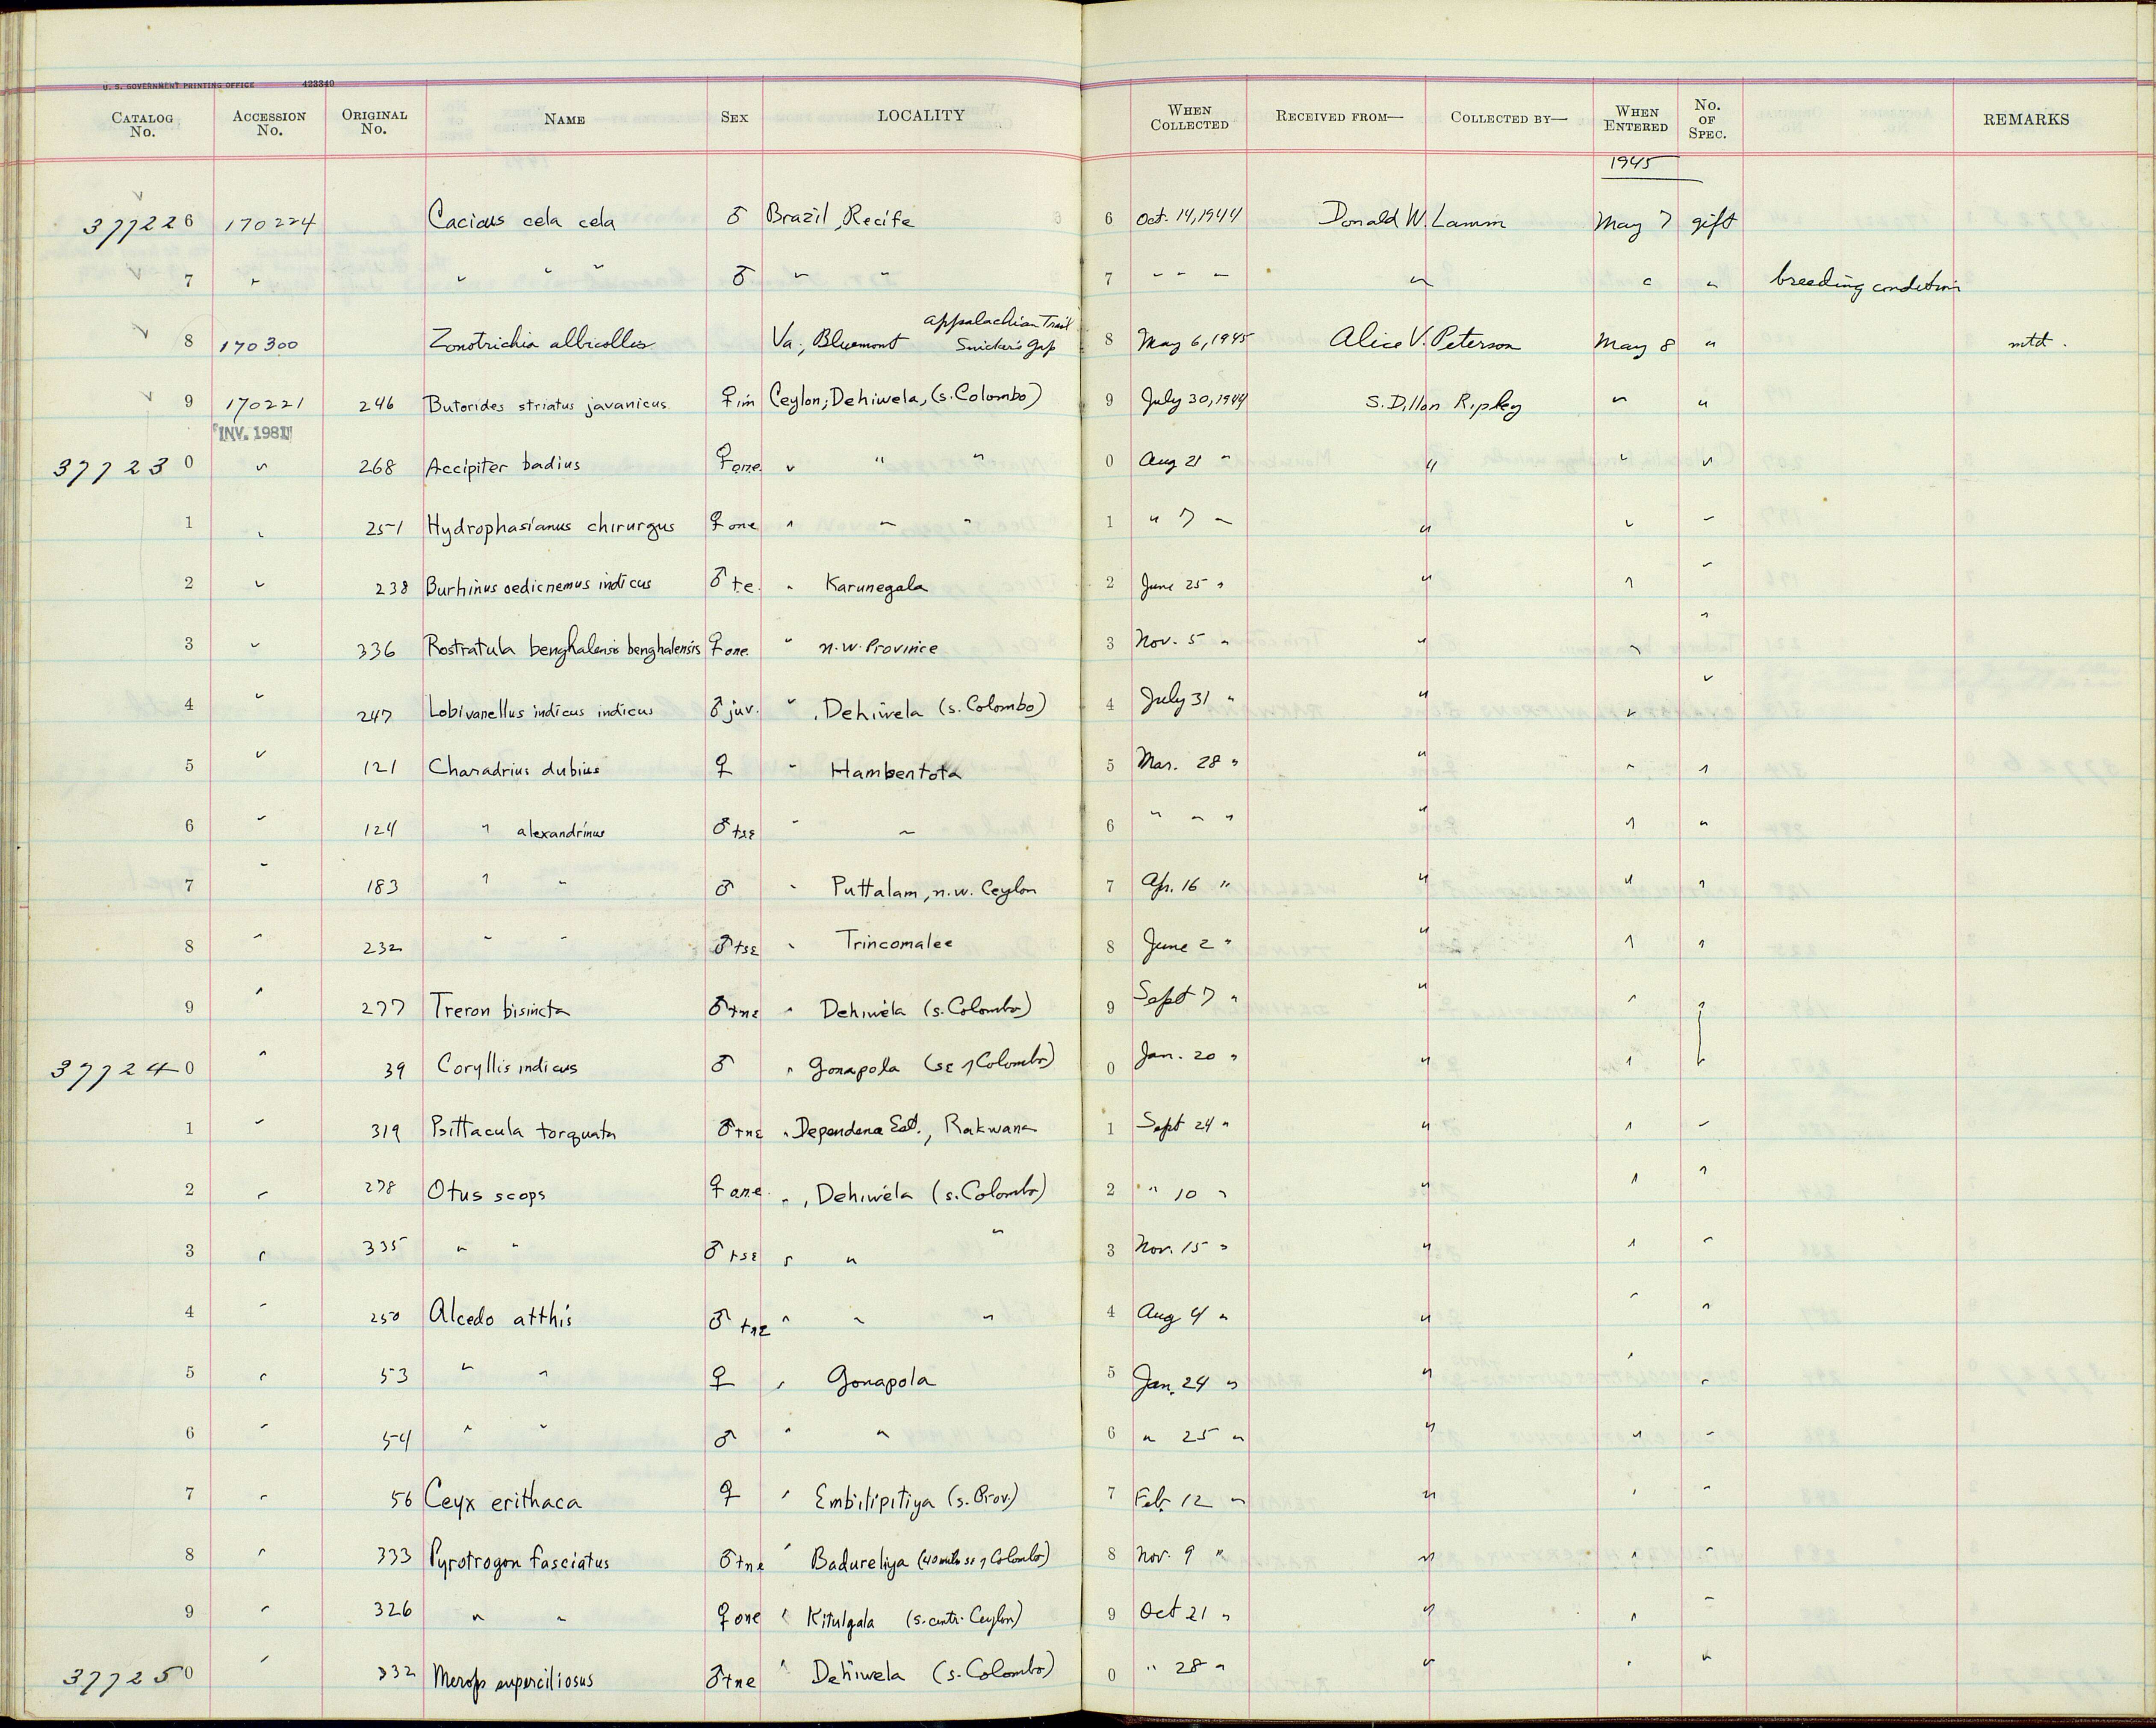 U. S. GOVERNMENT PRINTING OFFICE 423340
CATALOG No. ACCESSION No. ORIGINAL No. NAME SEX LOCALITY WHEN COLLECTED RECEIVED FROM— COLLECTED BY— WHEN ENTERED No. OF SPEC. REMARKS
1945
377226 170224 Cacicus cela cela ♂ Brazil, Recife 6 Oct. 14, 1944 Donald W. Lamm May 7 gift
7 " " " " ♂ " " 7 " " " " " " breeding condition
8 170300 Zonotrichia albicollis Va., Bluemont Appalachian Trail Snickers Gap 8 May 6, 1945 Alice V. Peterson May 8 " mtd.
9 170221 246 Butorides striatus javanicus ♀ im Ceylon; Dehiwela, (s. Colombo) 9 July 30, 1944 S. Dillon Ripley " "
INV. 1981
377230 " 268 Accipiter badius ♀ one " " " 0 Aug 21 " " " "
1 " 251 Hydrophasianus chirurgus ♀ one " " " 1 " 7 " " " "
2 " 238 Burhinus oedicnemus indicus ♂ te. " Karunegala 2 June 25 " " " "
3 " 336 Rostratula benghalensis benghalensis ♀ one " n.w. Province 3 Nov. 5 " " " "
4 " 247 Lobivanellus indicus indicus ♂ juv. " , Dehiwela (s. Colombo) 4 July 31 " " " "
5 " 121 Charadrius dubius ♀ " Hambentota 5 Mar. 28 " " " "
6 " 124 " alexandrinus ♂ tse " " 6 " " " " " "
7 " 183 " " ♂ " Puttalam, n.w. Ceylon 7 Apr. 16 " " " "
8 " 232 " " ♂ tse " Trincomalee 8 June 2 " " " "
9 " 277 Treron bisincta ♂ tne " Dehiwela (s. Colombo) 9 Sept 7 " " " "
377240 " 39 Coryllis indicus ♂ " Gonapola (se of Colombo) 0 Jan. 20 " " " "
1 " 319 Psittacula torquata ♂ tne " Dependena Est., Rakwana 1 Sept 24 " " " "
2 " 278 Otus scops ♀ one " , Dehiwela (s. Colombo) 2 " 10 " " " "
3 " 335 " " ♂ tse " " " 3 Nov. 15 " " " "
4 " 250 Alcedo atthis ♂ tne " " " 4 Aug 4 " " " "
5 " 53 " " ♀ " Gonapola 5 Jan. 24 " " " "
6 " 54 " " ♂ " " 6 " 25 " " " "
7 " 56 Ceyx erithaca ♀ " Embilipitiya (s. Prov.) 7 Feb. 12 " " " "
8 " 333 Pyrotrogon fasciatus ♂ tne " Badureliya (40 miles se of Colombo) 8 Nov. 9 " " " "
9 " 326 " " ♀ one " Kitulgala (s. centr. Ceylon) 9 Oct 21 " " " "
377250 " 332 Merops superciliosus ♂ tne " Dehiwela (s. Colombo) 0 " 28 " " " "